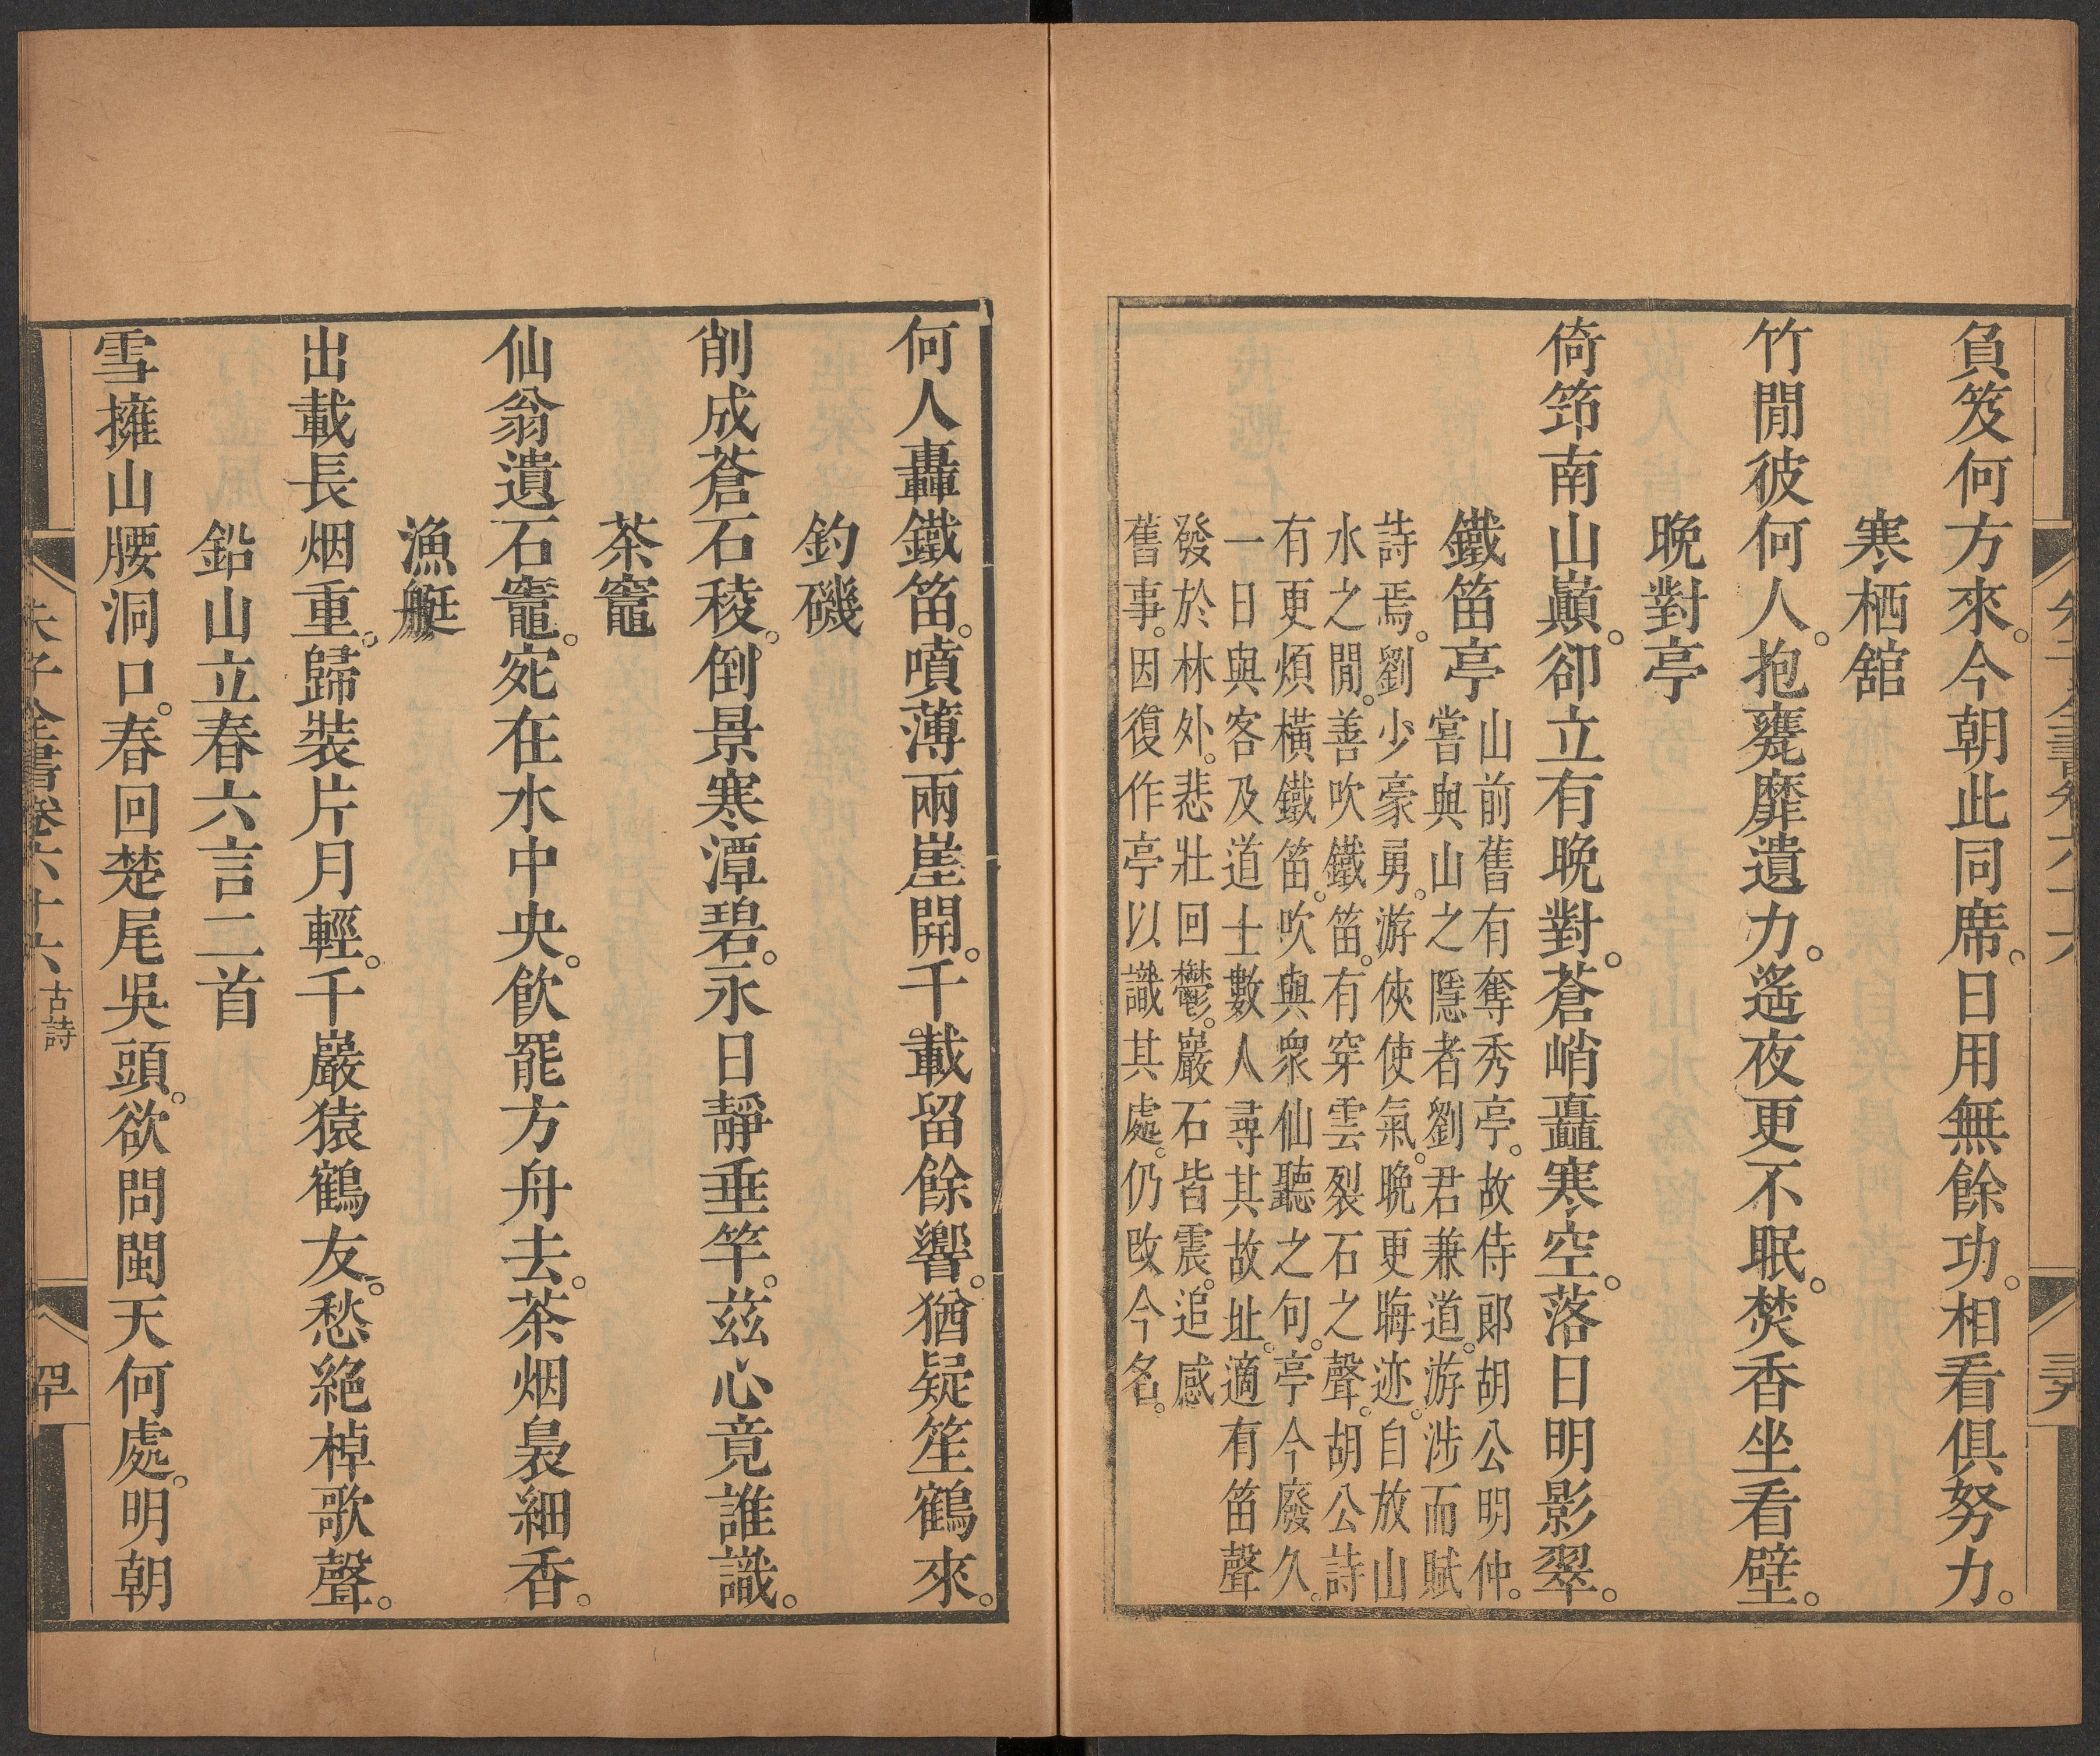 負笈何方來。今朝此同席。日用無餘功。相看俱努力。
寒栖舘
竹閒彼何人。抱甕靡遺力。遙夜更不眠。焚香坐看壁。
晚對亭
倚筇南山巔。卻立有晚對。蒼峭矗寒空。落日明影翠。
鐵笛亭
山前舊有奪秀亭。故侍郎胡公明仲。
嘗與山之隱者劉君兼道。游涉而賦
詩焉。劉少豪勇。游俠使氣。晚更晦迹。自放山
水之閒。善吹鐵笛。有穿雲裂石之聲。胡公詩
有更煩橫鐵笛。吹與衆仙聽之句。亭今廢久。
一日與客及道士數人尋其故址。適有笛聲
發於林外。悲壯回鬱。巖石皆震。追感
舊事。因復作亭以識其處。仍改今名。
何人轟鐵笛。噴薄兩崖開。千載留餘響。猶疑笙鶴來。
釣磯
削成蒼石稜。倒景寒潭碧。永日靜垂竿。茲心竟誰識。
茶竈
仙翁遺石竈。宛在水中央。飲罷方舟去。茶烟裊細香。
漁艇
出載長烟重。歸裝片月輕。千巖猿鶴友。愁絕棹歌聲。
鉛山立春六言二首
雪擁山腰洞口。春回楚尾吳頭。欲問閩天何處。明朝
朱子全書卷六十六 古詩